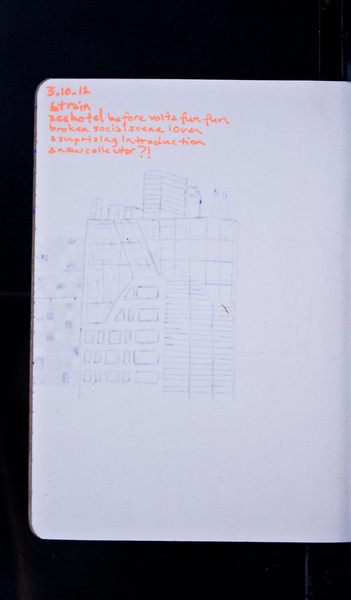 3.10.12
btrain
ace hotel before volts fun fun
broken social scene lover
a suprising introduction
a new collector?!